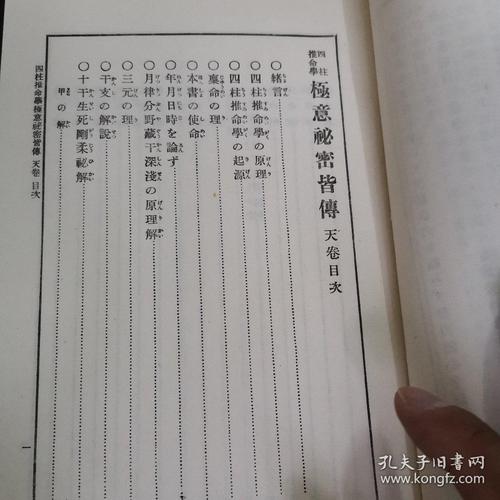 四柱推命學 極意祕密皆傳 天卷目次
〇緒言
〇四柱推命學の原理
〇四柱推命學の起源
〇稟命の理
〇本書の使命
〇年月日時を論ず
〇月律分野藏干深淺の原理解
〇三元の理
〇干支の解說
〇十干生死剛柔祕解
甲の解
四柱推命學極意祕密皆傳 天卷 目次
一
孔夫子旧书网
www.kongfz.com